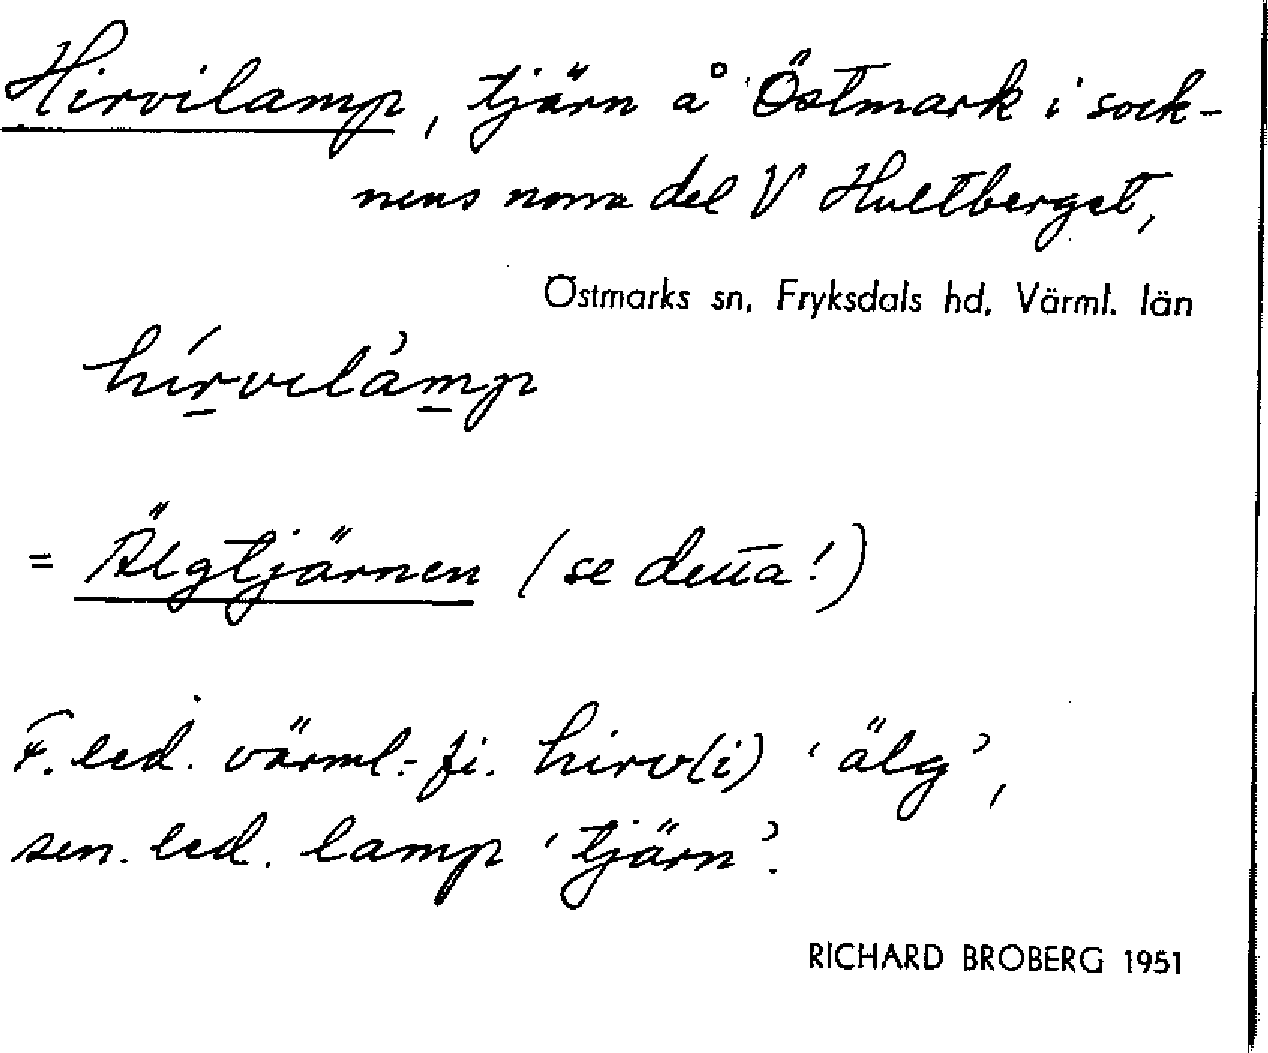 Hirvilamp, tjärn å Östmark i sock-
nens norra del V Hultberget,
Östmarks sn, Fryksdals hd, Värml. län
hírvilàmp
= Älgtjärnen (se detta!)
F. led. värml.-fi. hirv(i) 'älg',
sen. led. lamp 'tjärn'.
RICHARD BROBERG 1951